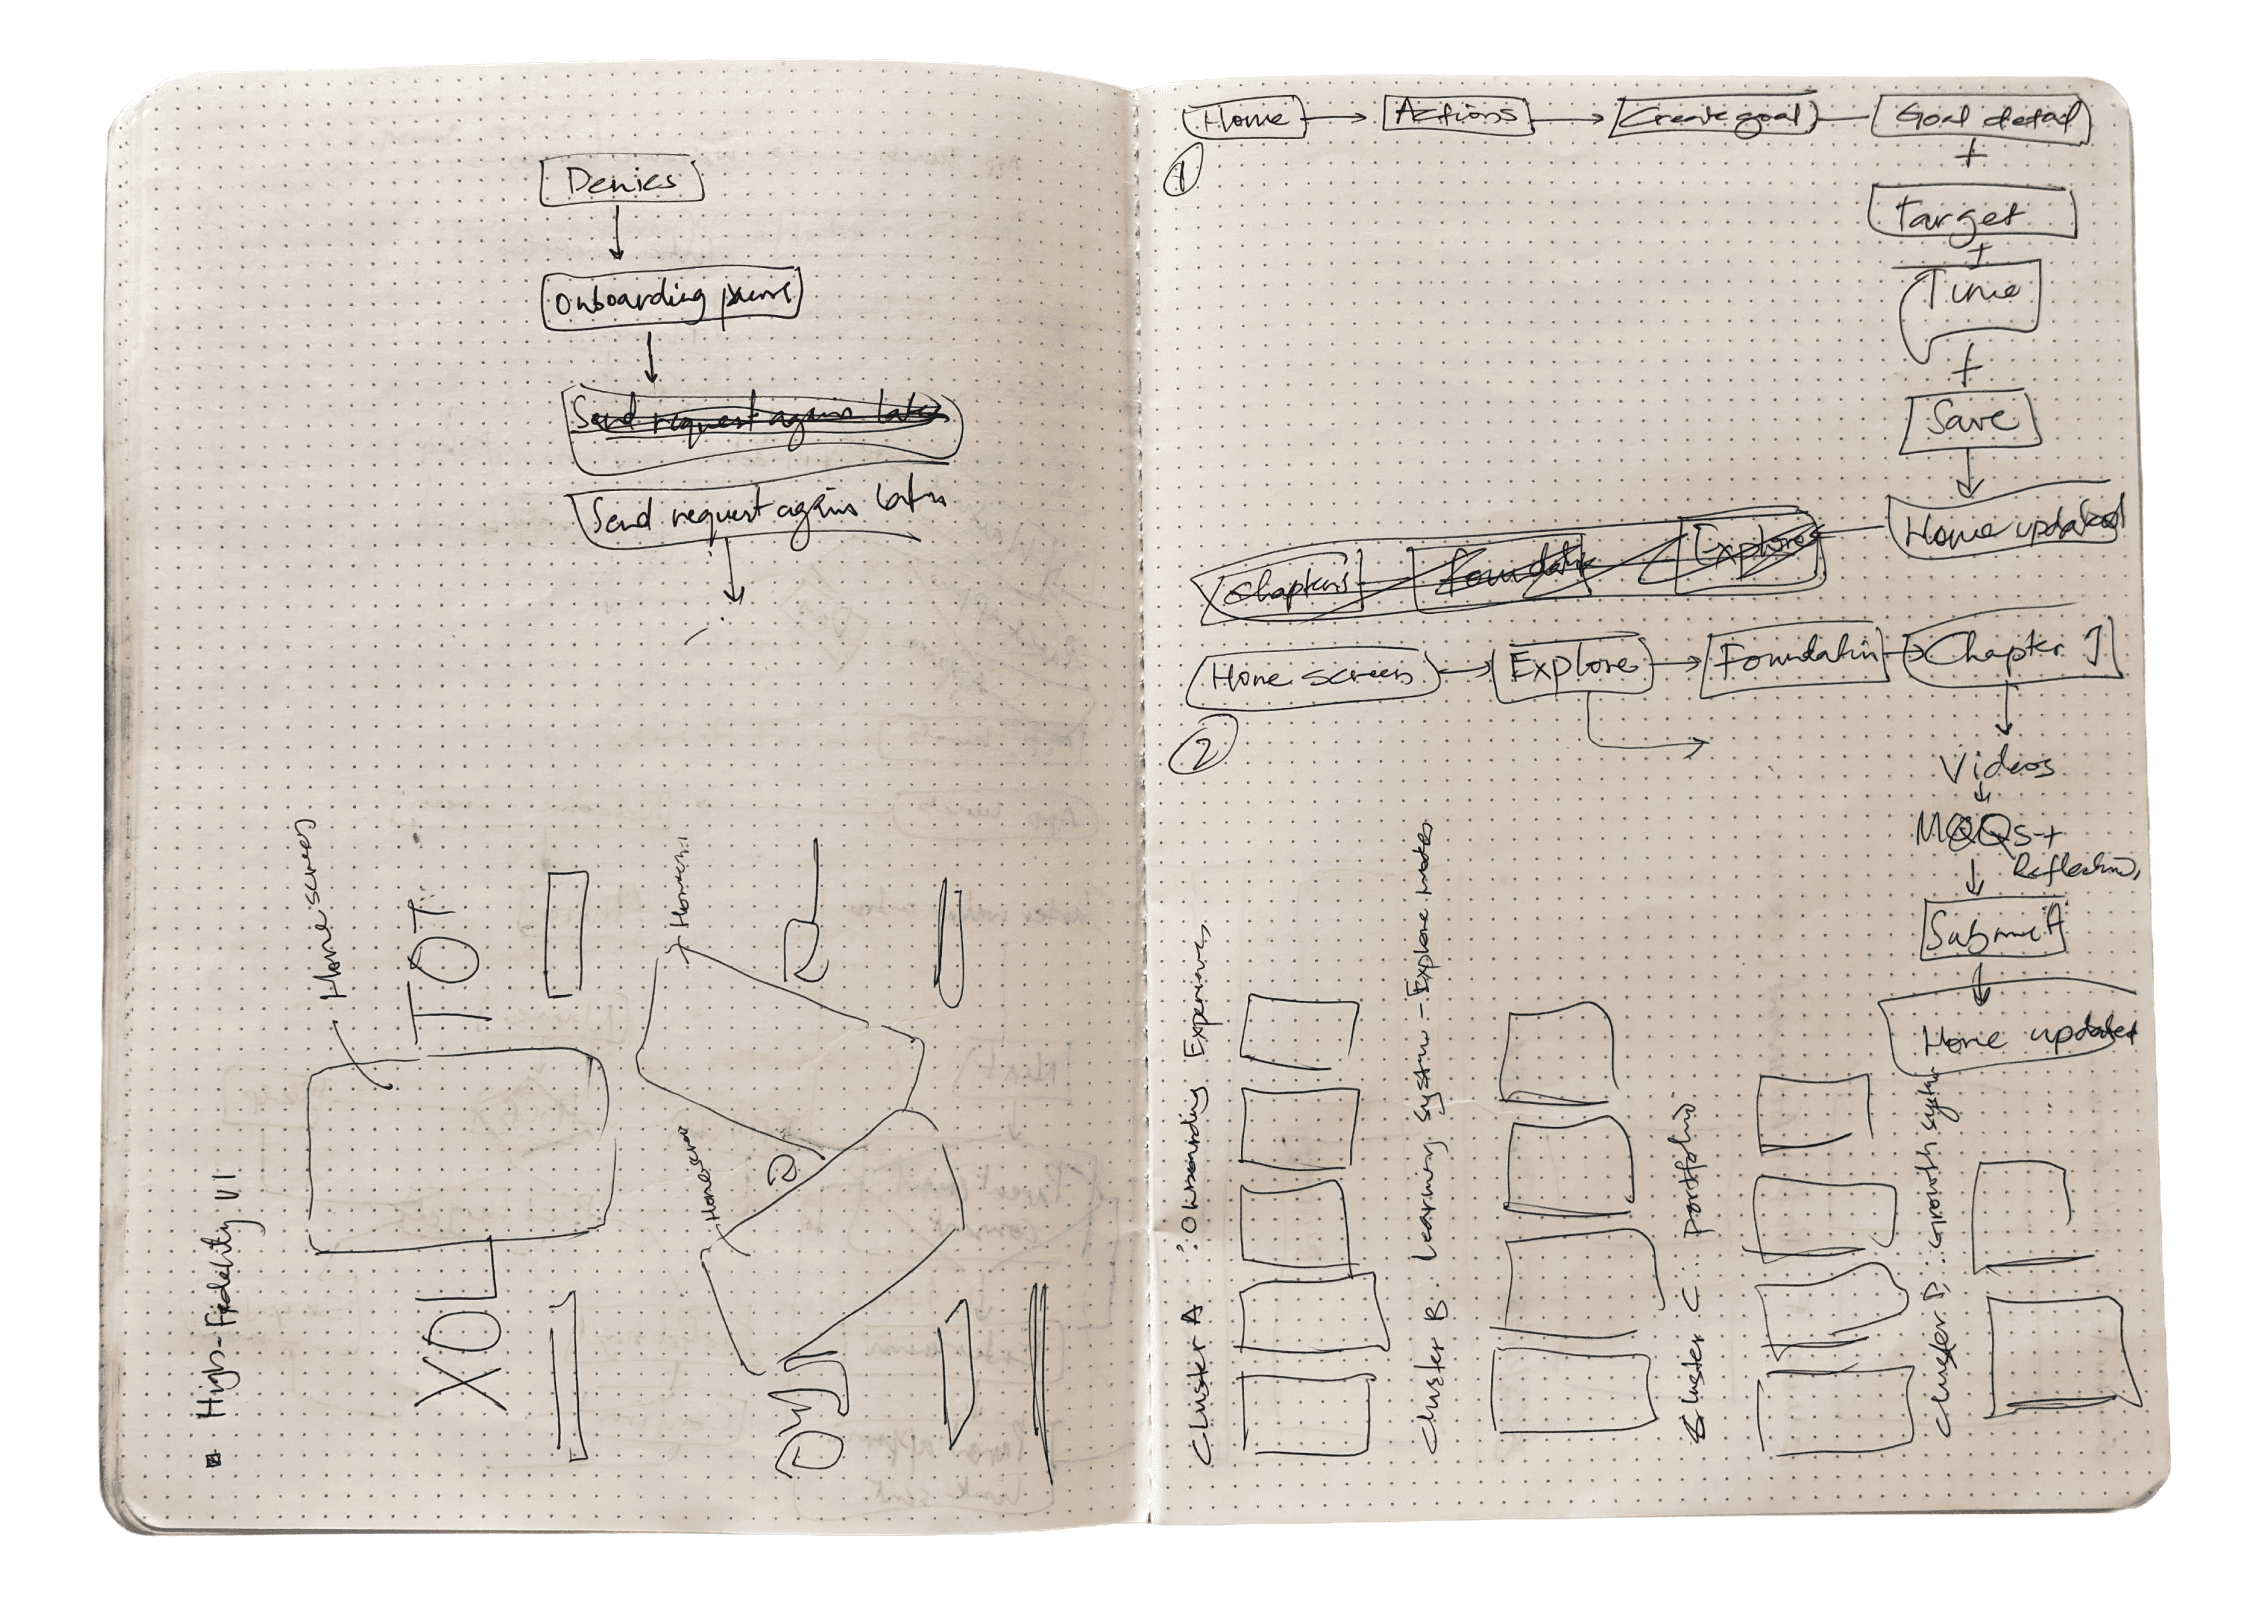 Denies
Onboarding
Send request again later
Send request again later
Home screen
TOT
High-Fidelity V1
XOL
Home → Actions → Create goal — Goal detail
①
+
Target
+
Time
+
Save
Home updated
Chapters Foundatin Explore
Home screen → Explore → Foundatin → Chapter 1
②
Videos
MQQs +
Reflection
Submit
Home updated
Cluster A : Onboarding Experiences
Cluster B : Learning System - Explore modes
Cluster C : Portfolio
Cluster D : Growth system